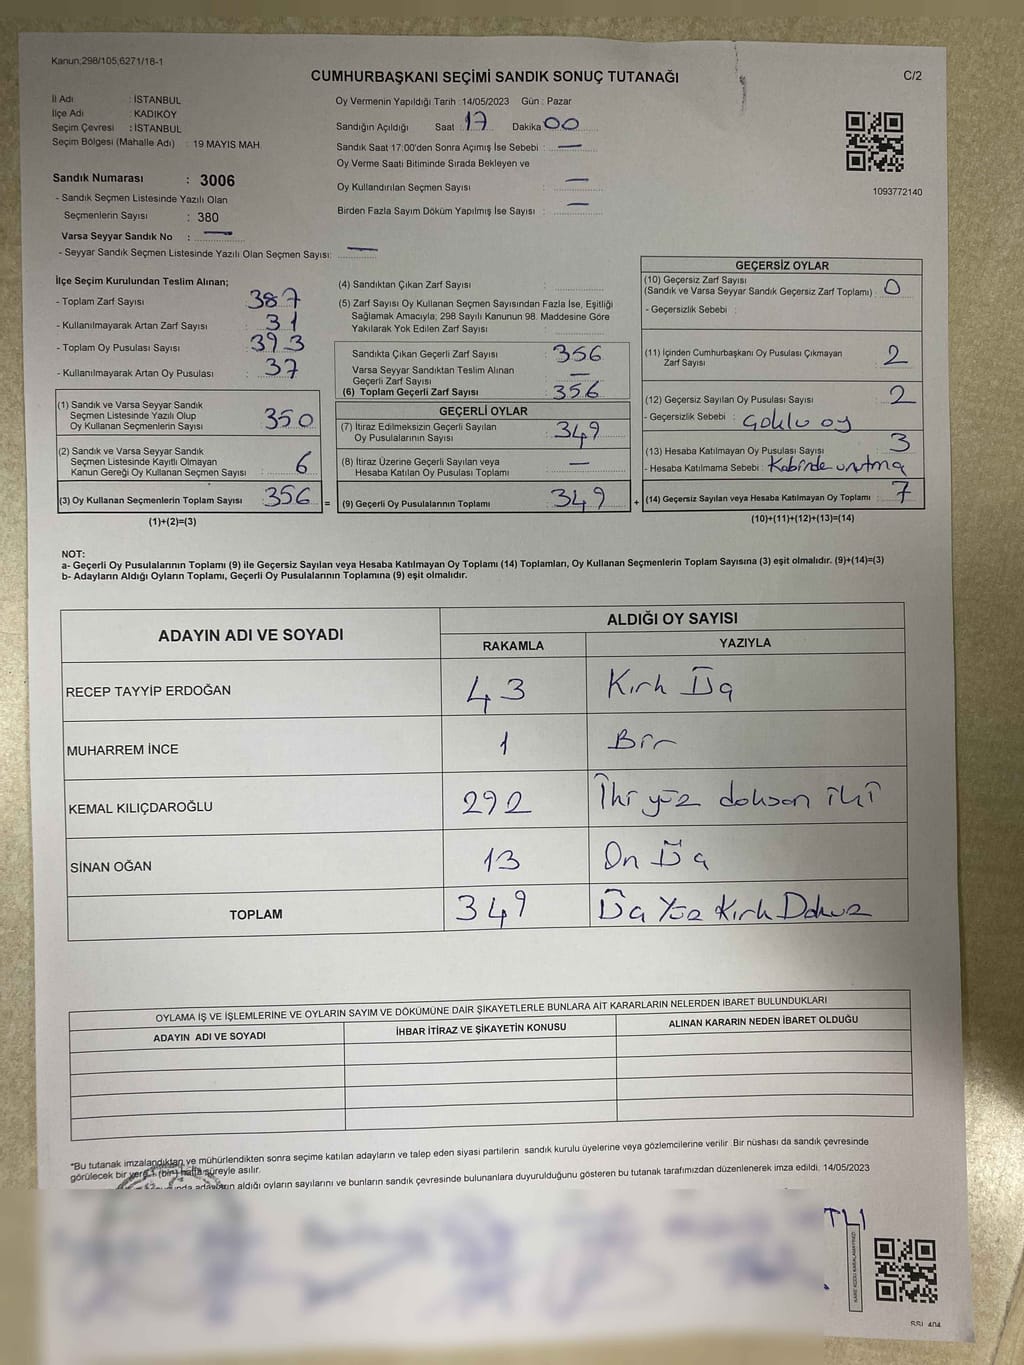 Kanun;298/105,6271/18-1
CUMHURBAŞKANI SEÇİMİ SANDIK SONUÇ TUTANAĞI
C/2
İl Adı : İSTANBUL
İlçe Adı : KADIKÖY
Seçim Çevresi : İSTANBUL
Seçim Bölgesi (Mahalle Adı) : 19 MAYIS MAH.
Oy Vermenin Yapıldığı Tarih : 14/05/2023 Gün : Pazar
Sandığın Açıldığı Saat : 17 Dakika 00
Sandık Saat 17:00'den Sonra Açımış İse Sebebi : —
Oy Verme Saati Bitiminde Sırada Bekleyen ve
Oy Kullandırılan Seçmen Sayısı : —
Birden Fazla Sayım Döküm Yapılmış İse Sayısı : —
1093772140
Sandık Numarası : 3006
- Sandık Seçmen Listesinde Yazılı Olan
Seçmenlerin Sayısı : 380
Varsa Seyyar Sandık No : —
- Seyyar Sandık Seçmen Listesinde Yazılı Olan Seçmen Sayısı: —
İlçe Seçim Kurulundan Teslim Alınan;
- Toplam Zarf Sayısı 387
- Kullanılmayarak Artan Zarf Sayısı 31
- Toplam Oy Pusulası Sayısı 393
- Kullanılmayarak Artan Oy Pusulası 37
(1) Sandık ve Varsa Seyyar Sandık
Seçmen Listesinde Yazılı Olup
Oy Kullanan Seçmenlerin Sayısı 350
(2) Sandık ve Varsa Seyyar Sandık
Seçmen Listesinde Kayıtlı Olmayan
Kanun Gereği Oy Kullanan Seçmen Sayısı 6
(3) Oy Kullanan Seçmenlerin Toplam Sayısı 356 =
(1)+(2)=(3)
(4) Sandıktan Çıkan Zarf Sayısı :
(5) Zarf Sayısı Oy Kullanan Seçmen Sayısından Fazla İse, Eşitliği
Sağlamak Amacıyla; 298 Sayılı Kanunun 98. Maddesine Göre
Yakılarak Yok Edilen Zarf Sayısı :
Sandıkta Çıkan Geçerli Zarf Sayısı 356
Varsa Seyyar Sandıktan Teslim Alınan
Geçerli Zarf Sayısı —
(6) Toplam Geçerli Zarf Sayısı 356
GEÇERLİ OYLAR
(7) İtiraz Edilmeksizin Geçerli Sayılan
Oy Pusulalarının Sayısı 349
(8) İtiraz Üzerine Geçerli Sayılan veya
Hesaba Katılan Oy Pusulası Toplamı —
(9) Geçerli Oy Pusulalarının Toplamı 349 +
GEÇERSİZ OYLAR
(10) Geçersiz Zarf Sayısı
(Sandık ve Varsa Seyyar Sandık Geçersiz Zarf Toplamı) : 0
- Geçersizlik Sebebi :
(11) İçinden Cumhurbaşkanı Oy Pusulası Çıkmayan
Zarf Sayısı 2
(12) Geçersiz Sayılan Oy Pusulası Sayısı 2
- Geçersizlik Sebebi : Çoklu oy
(13) Hesaba Katılmayan Oy Pusulası Sayısı 3
- Hesaba Katılmama Sebebi : Kabinde unutma
(14) Geçersiz Sayılan veya Hesaba Katılmayan Oy Toplamı : 7
(10)+(11)+(12)+(13)=(14)
NOT:
a- Geçerli Oy Pusulalarının Toplamı (9) ile Geçersiz Sayılan veya Hesaba Katılmayan Oy Toplamı (14) Toplamları, Oy Kullanan Seçmenlerin Toplam Sayısına (3) eşit olmalıdır. (9)+(14)=(3)
b- Adayların Aldığı Oyların Toplamı, Geçerli Oy Pusulalarının Toplamına (9) eşit olmalıdır.
ADAYIN ADI VE SOYADI
ALDIĞI OY SAYISI
RAKAMLA YAZIYLA
RECEP TAYYİP ERDOĞAN 43 Kırk Üç
MUHARREM İNCE 1 Bir
KEMAL KILIÇDAROĞLU 292 İki yüz doksan iki
SİNAN OĞAN 13 On Üç
TOPLAM 349 Üç Yüz Kırk Dokuz
OYLAMA İŞ VE İŞLEMLERİNE VE OYLARIN SAYIM VE DÖKÜMÜNE DAİR ŞİKAYETLERLE BUNLARA AİT KARARLARIN NELERDEN İBARET BULUNDUKLARI
ADAYIN ADI VE SOYADI
İHBAR İTİRAZ VE ŞİKAYETİN KONUSU
ALINAN KARARIN NEDEN İBARET OLDUĞU
*Bu tutanak imzalandıktan ve mühürlendikten sonra seçime katılan adayların ve talep eden siyasi partilerin sandık kurulu üyelerine veya gözlemcilerine verilir. Bir nüshası da sandık çevresinde
görülecek bir yere 1 (bir) hafta süreyle asılır.
adayların aldığı oyların sayılarını ve bunların sandık çevresinde bulunanlara duyurulduğunu gösteren bu tutanak tarafımızdan düzenlenerek imza edildi. 14/05/2023
TLI